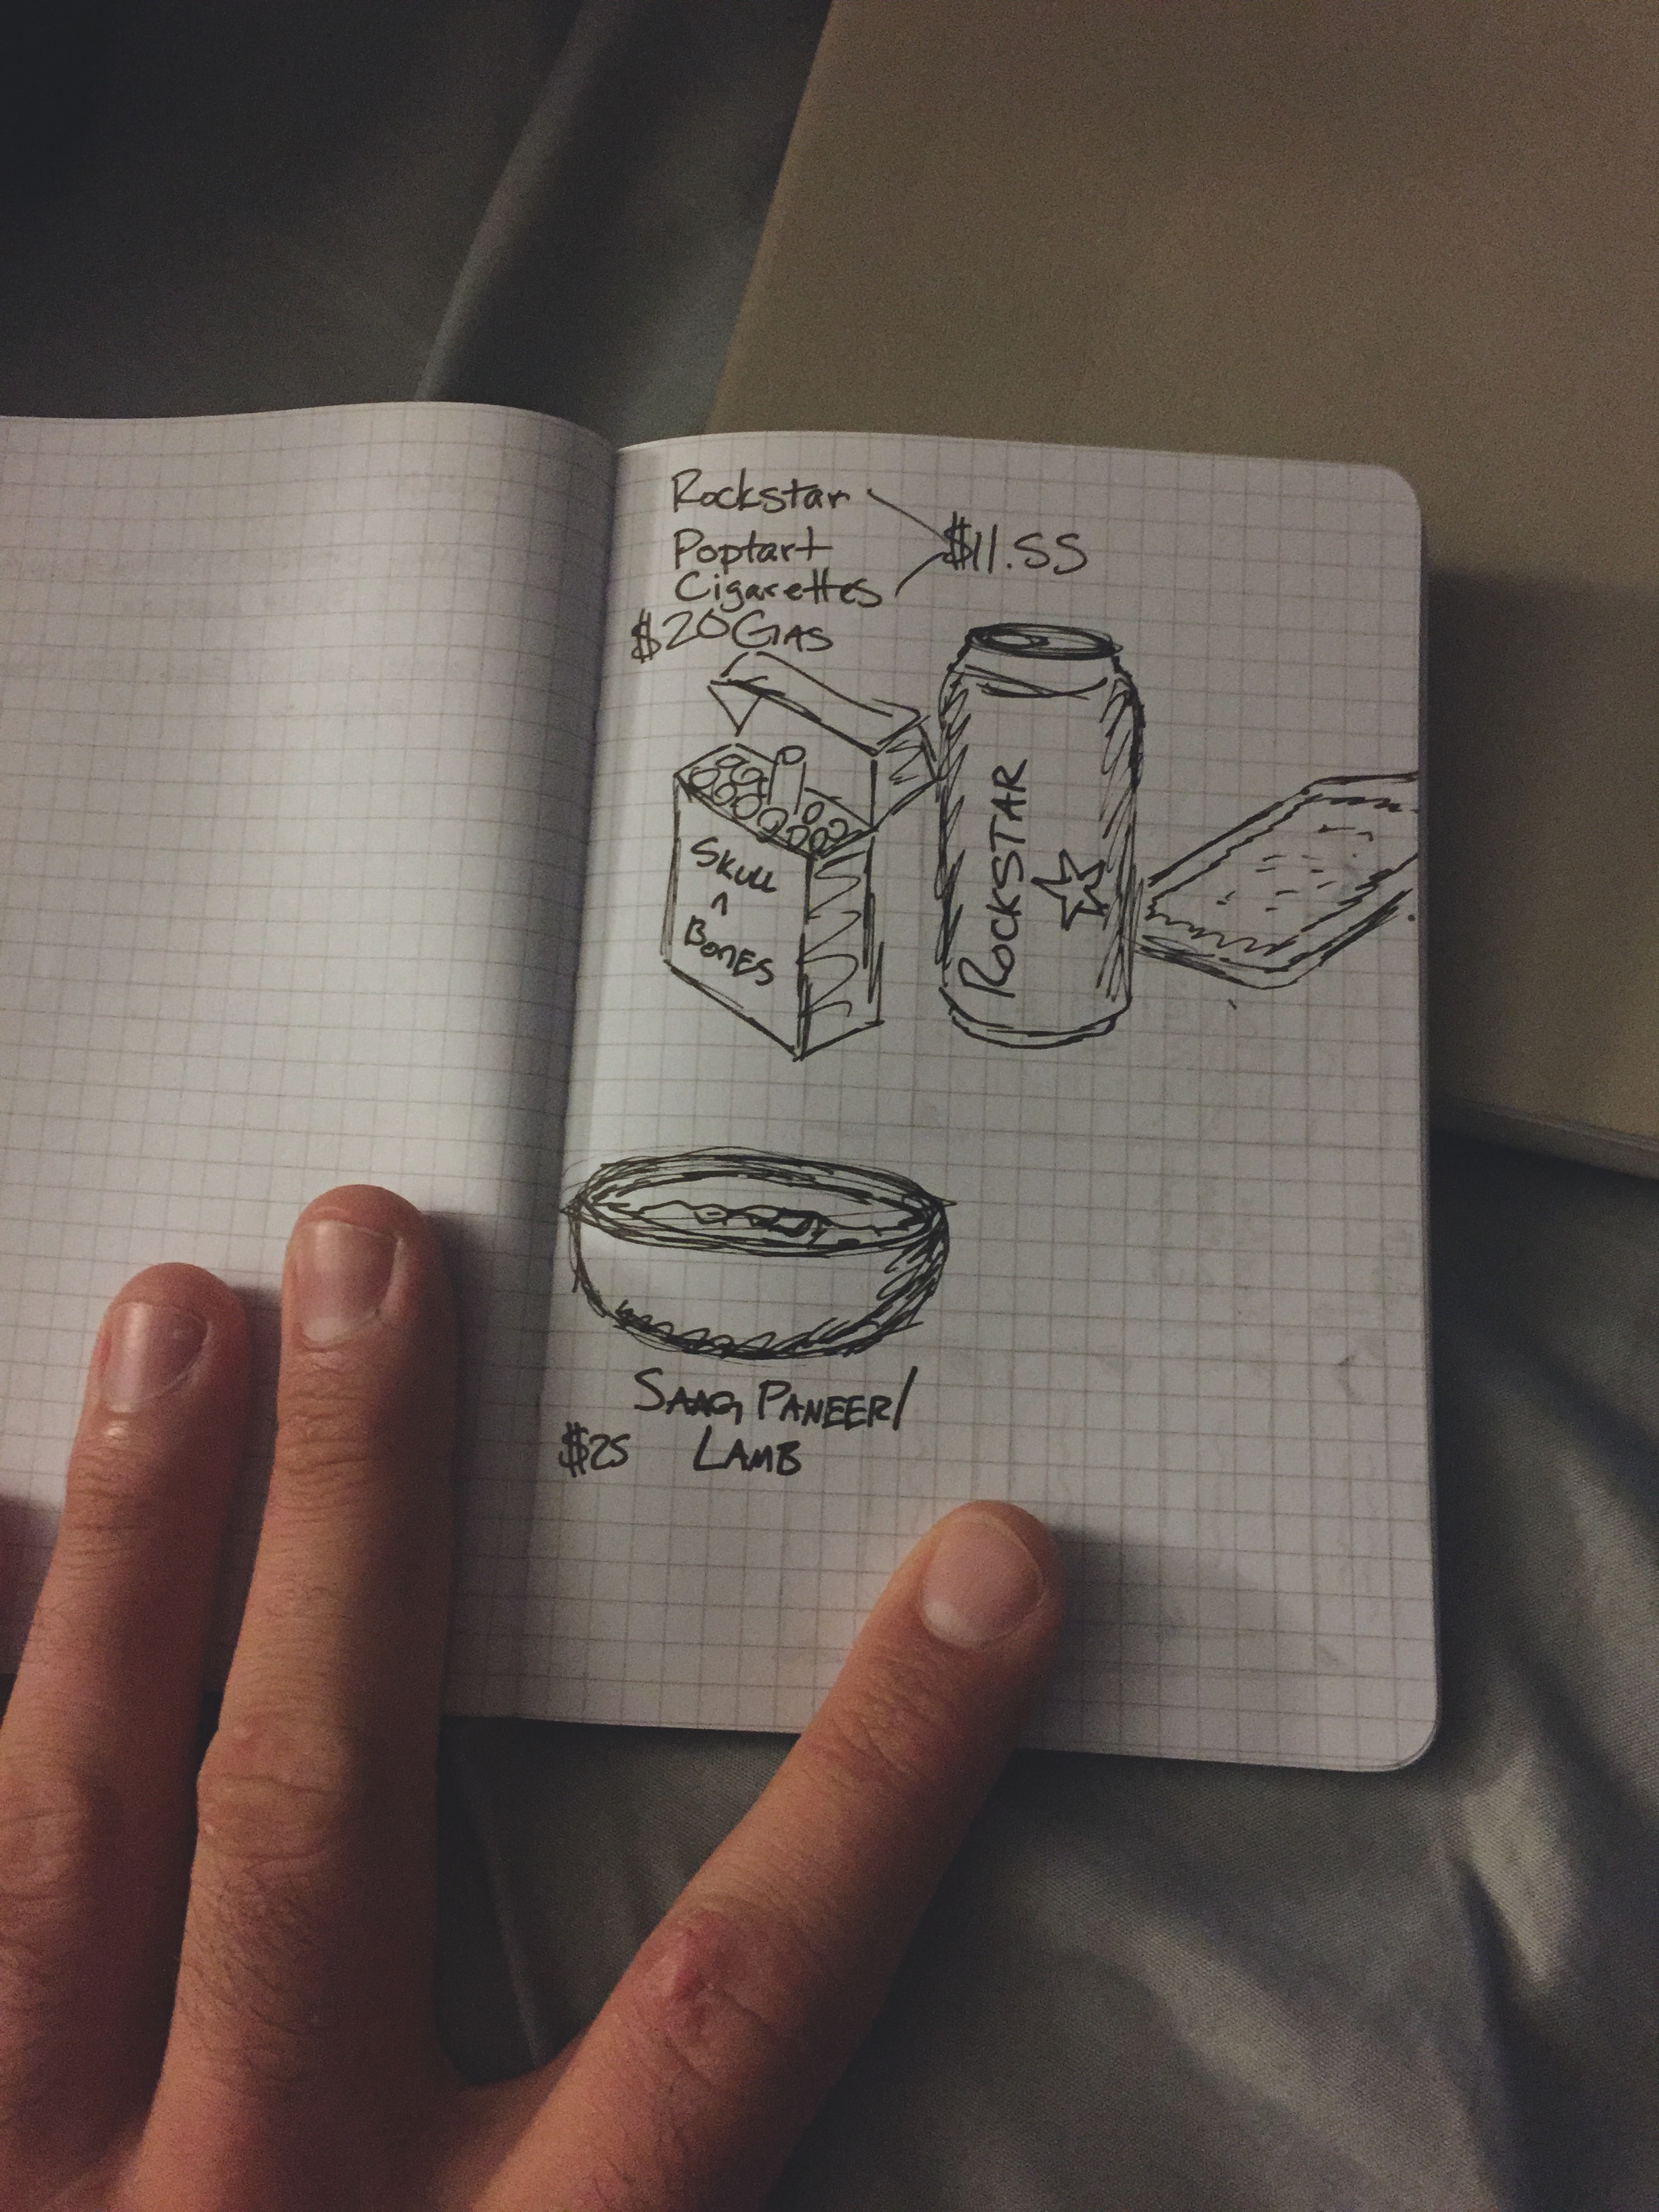 Rockstar
Poptart $11.55
Cigarettes
$20 GAS
SKULL
^
BONES
ROCKSTAR
SAAG PANEER/
$25 LAMB